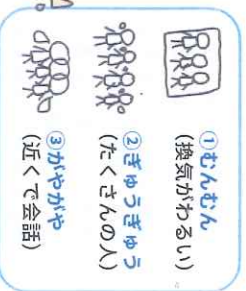 ①むんむん
(換気がわるい)
②ぎゅうぎゅう
(たくさんの人)
③がやがや
(近くで会話)